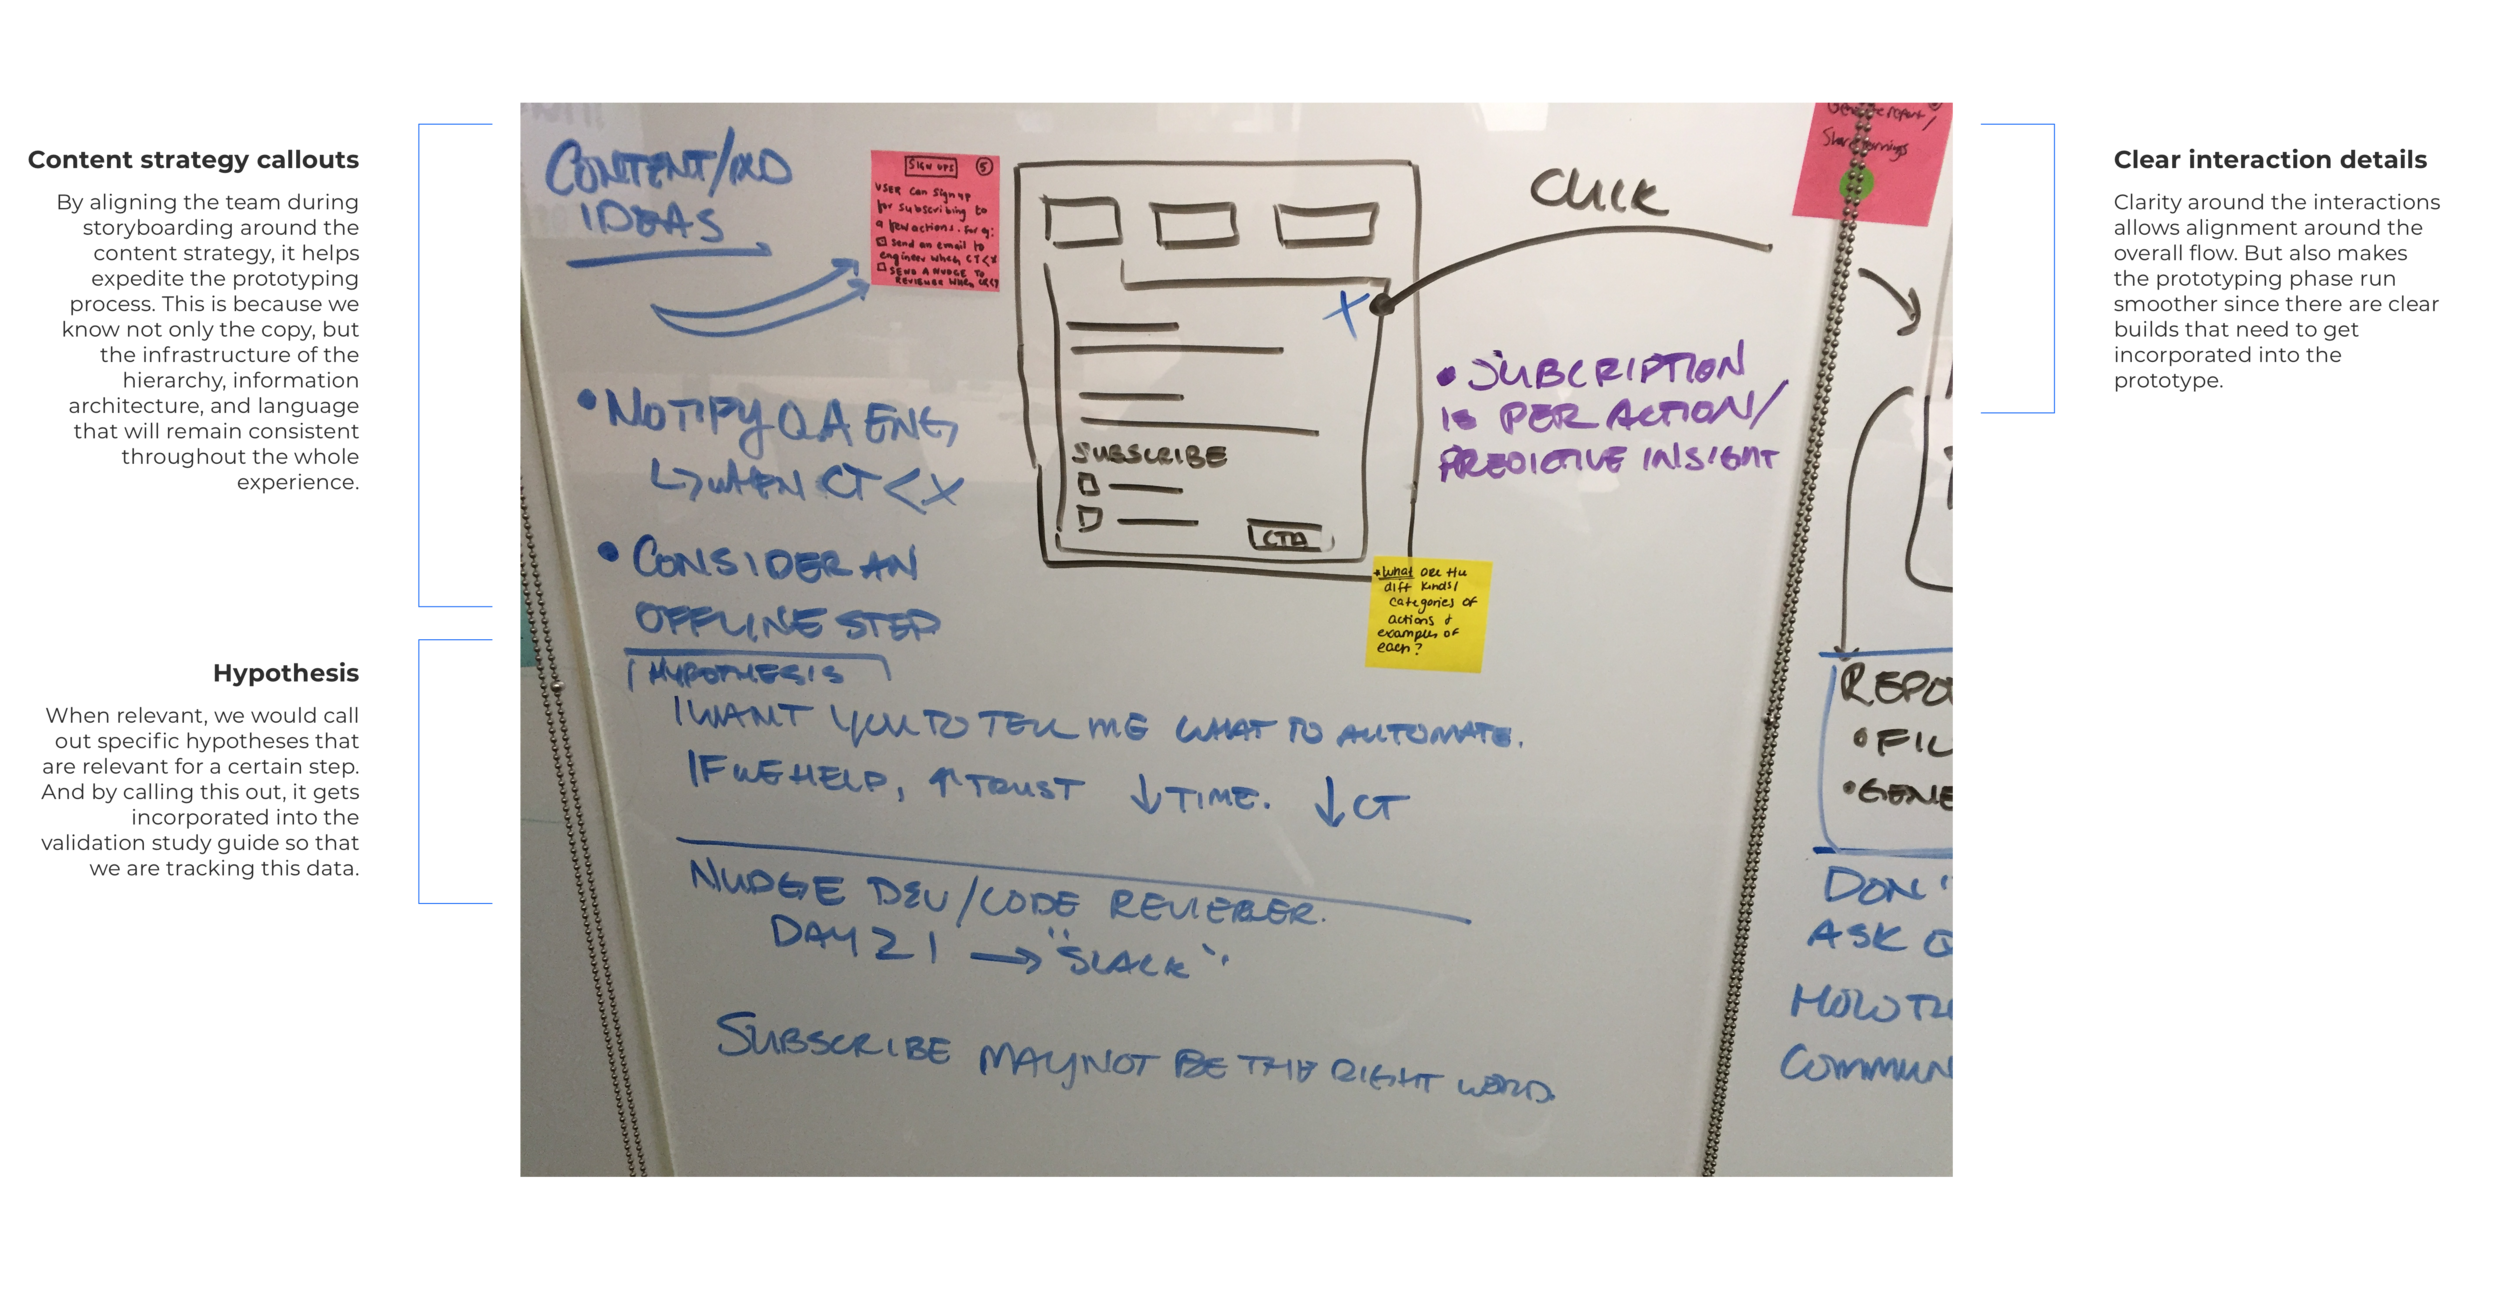 Content strategy callouts
By aligning the team during
storyboarding around the
content strategy, it helps
expedite the prototyping
process. This is because we
know not only the copy, but
the infrastructure of the
hierarchy, information
architecture, and language
that will remain consistent
throughout the whole
experience.
Hypothesis
When relevant, we would call
out specific hypotheses that
are relevant for a certain step.
And by calling this out, it gets
incorporated into the
validation study guide so that
we are tracking this data.
CONTENT/IXD
IDEAS
SIGN UPS 5
USER can Sign up
for subscribing to
a few actions. for eg:
Send an email to
engineer when CT<X
SEND A NUDGE TO
REVIEWER WHEN
• NOTIFY QA ENG
↳ WHEN CT < X
• CONSIDER AN
OFFLINE STEP
HYPOTHESIS
I WANT YOU TO TELL ME WHAT TO AUTOMATE.
IF WE HELP, ↑ TRUST ↓ TIME. ↓ CT
NUDGE DEV/CODE REVIEWER.
DAY 21 → "SLACK"
SUBSCRIBE MAY NOT BE THE RIGHT WORD.
X
SUBSCRIBE
CTA
CLICK
• SUBCRIPTION
IS PER ACTION/
PREDICTIVE INSIGHT
• What are the
diff kinds/
categories of
actions &
examples of
each?
report/
Share
REPO
• FIL
• GENE
DON'
ASK Q
HOW TH
COMMUN
Clear interaction details
Clarity around the interactions
allows alignment around the
overall flow. But also makes
the prototyping phase run
smoother since there are clear
builds that need to get
incorporated into the
prototype.